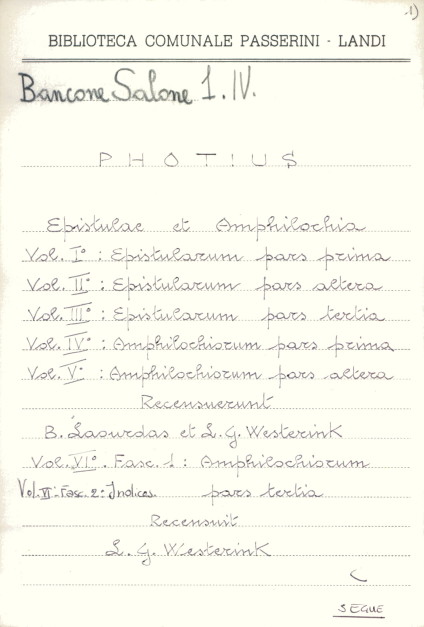 1)
BIBLIOTECA COMUNALE PASSERINI - LANDI
Bancone Salone 1. IV.
PHOTIUS
Epistulae et Amphilochia
Vol. I° : Epistularum pars prima
Vol. II° : Epistularum pars altera
Vol. III° : Epistularum pars tertia
Vol. IV° : Amphilochiorum pars prima
Vol. V° : Amphilochiorum pars altera
Recensuerunt
B. Laourdas et L. G. Westerink
Vol. VI°. Fasc. 1 : Amphilochiorum
Vol. VI - Fasc. 2 : Indices. pars tertia
Recensuit
L. G. Westerink
SEGUE